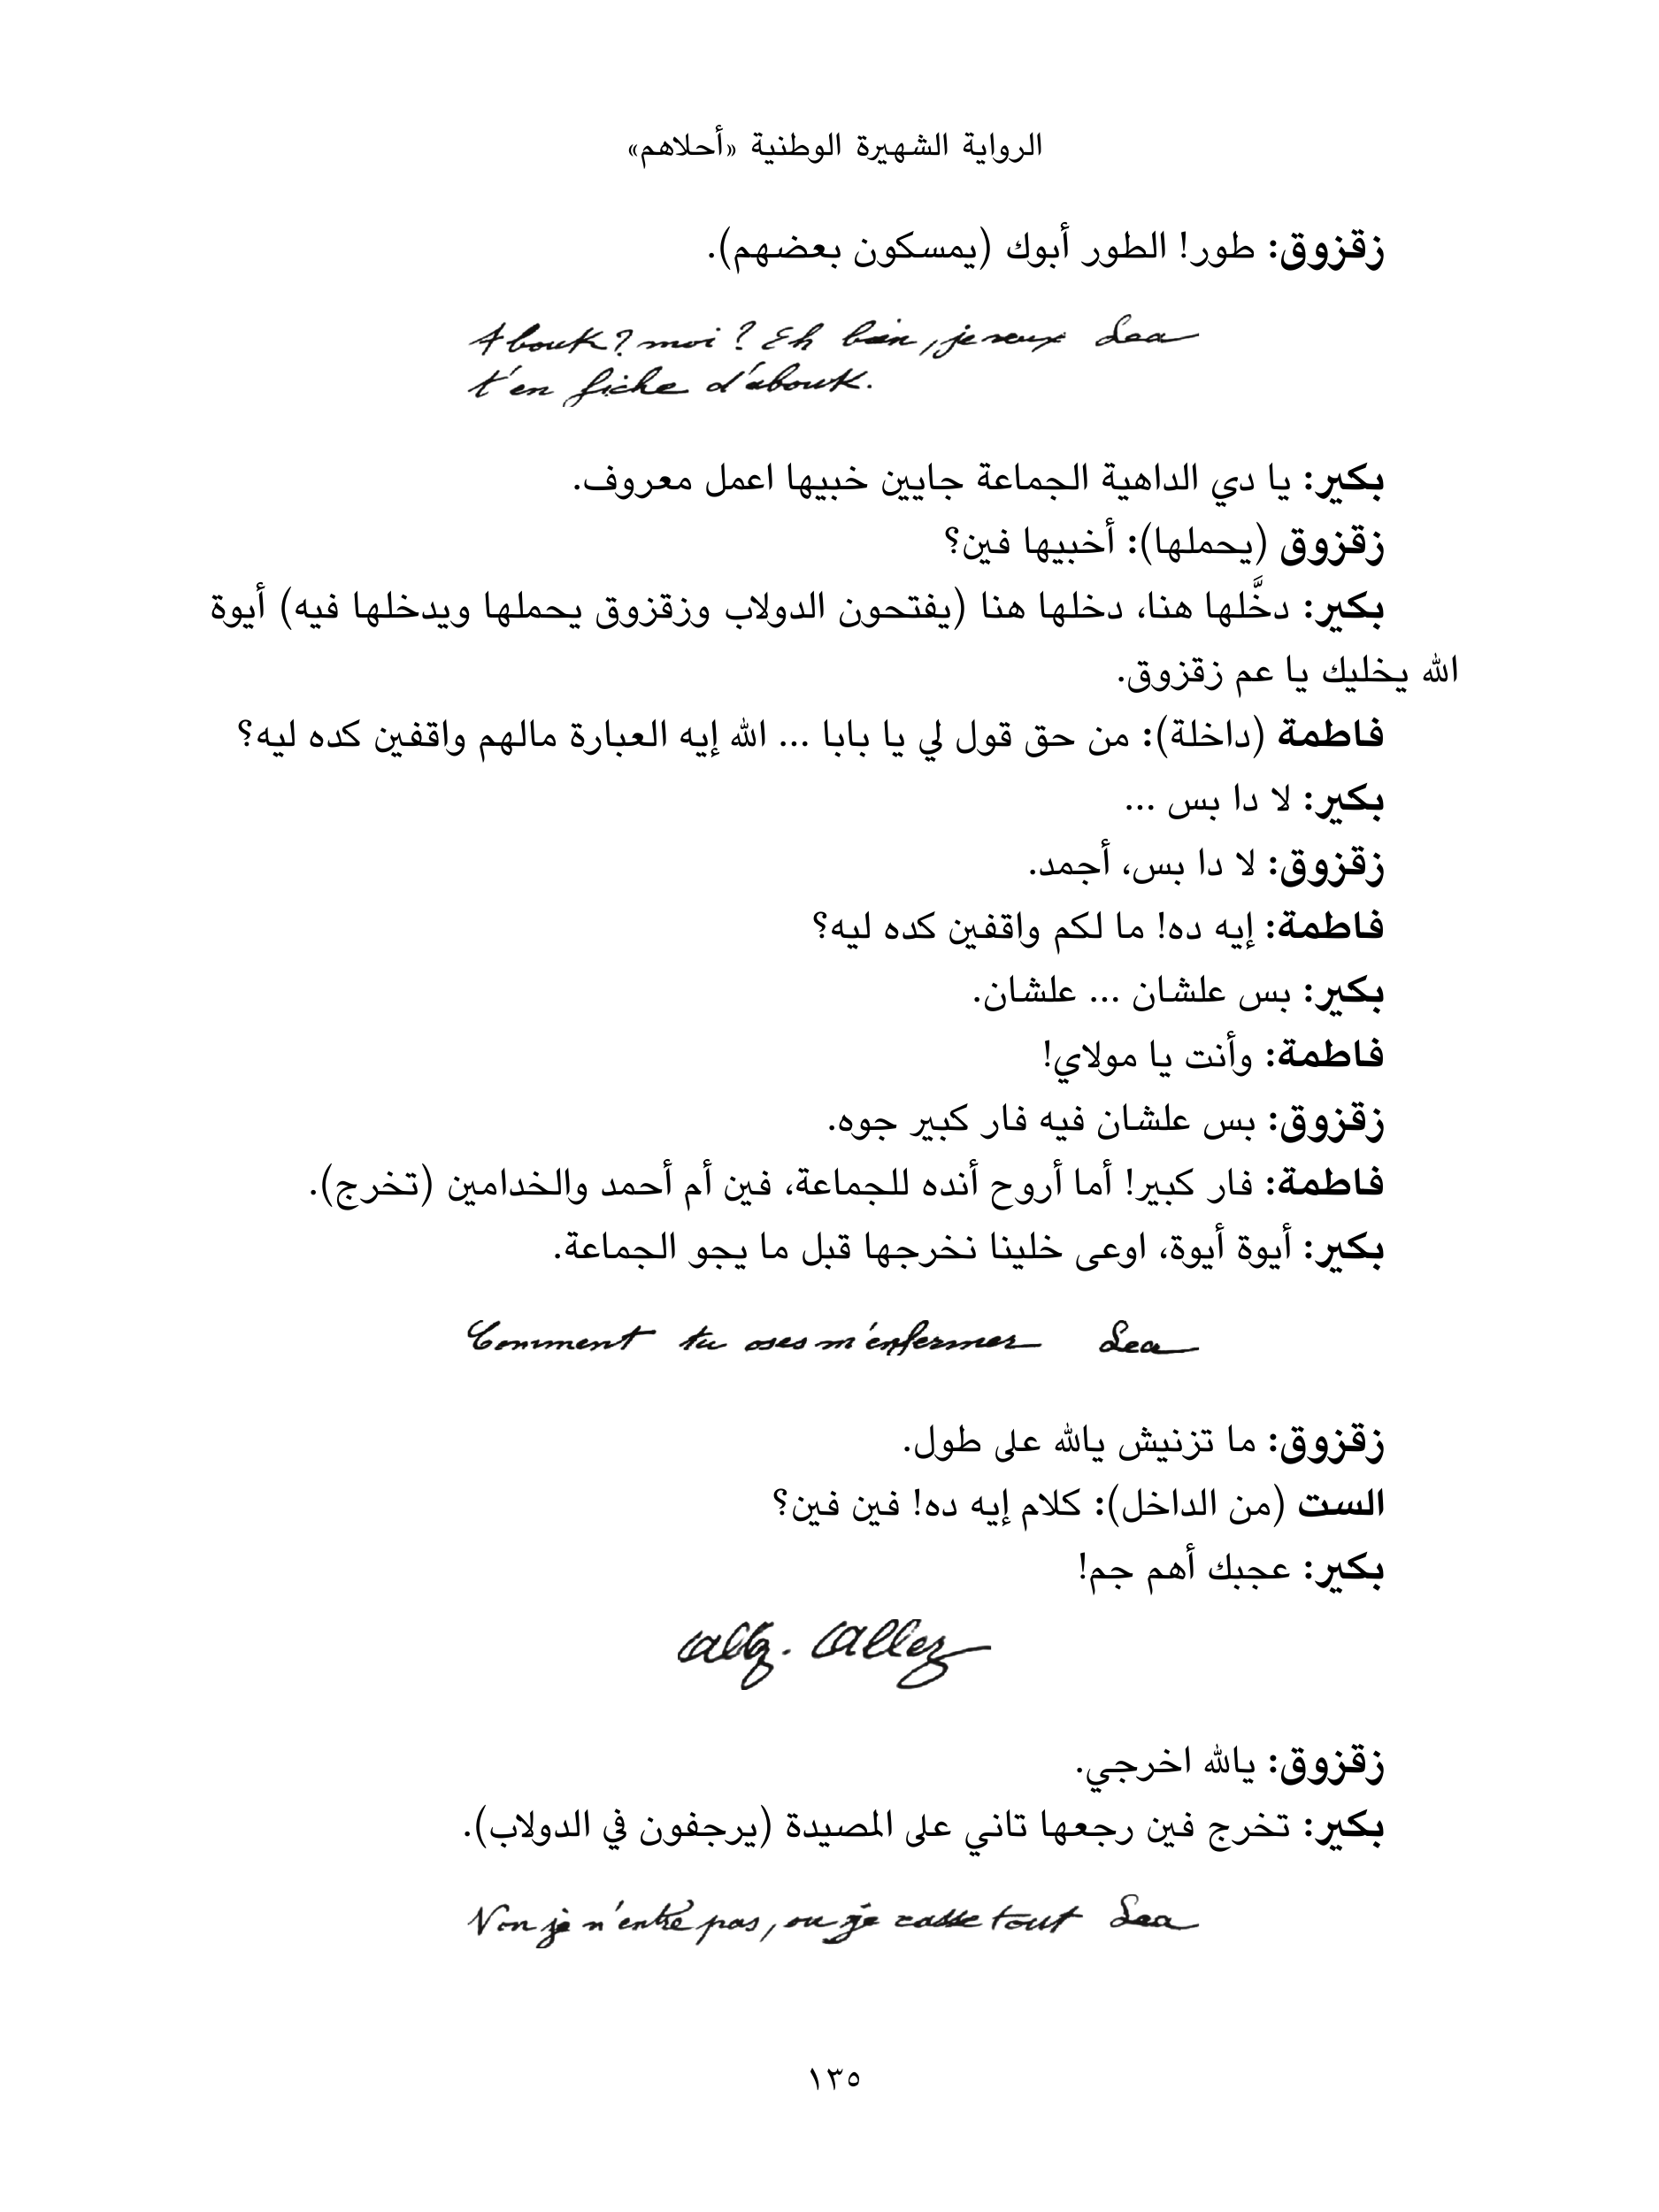 الرواية الشهيرة الوطنية «أحلاهم»
زقزوق: طور! الطور أبوك (يمسكون بعضهم).
Abouk? moi? Eh bien, je veux Lea
t'en fiche d'abouk.
بكير: يا دي الداهية الجماعة جايين خبيها اعمل معروف.
زقزوق (يحملها): أخبيها فين؟
بكير: دخَّلها هنا، دخلها هنا (يفتحون الدولاب وزقزوق يحملها ويدخلها فيه) أيوة
الله يخليك يا عم زقزوق.
فاطمة (داخلة): من حق قول لي يا بابا … الله إيه العبارة مالهم واقفين كده ليه؟
بكير: لا دا بس …
زقزوق: لا دا بس، أجمد.
فاطمة: إيه ده! ما لكم واقفين كده ليه؟
بكير: بس علشان … علشان.
فاطمة: وأنت يا مولاي!
زقزوق: بس علشان فيه فار كبير جوه.
فاطمة: فار كبير! أما أروح أنده للجماعة، فين أم أحمد والخدامين (تخرج).
بكير: أيوة أيوة، اوعى خلينا نخرجها قبل ما يجو الجماعة.
Comment tu oses m'enfermer Lea
زقزوق: ما تزنيش يالله على طول.
الست (من الداخل): كلام إيه ده! فين فين؟
بكير: عجبك أهم جم!
Allez
زقزوق: يالله اخرجي.
بكير: تخرج فين رجعها تاني على المصيدة (يرجفون في الدولاب).
Non je n'entre pas, ou je casse tout Lea
١٣٥